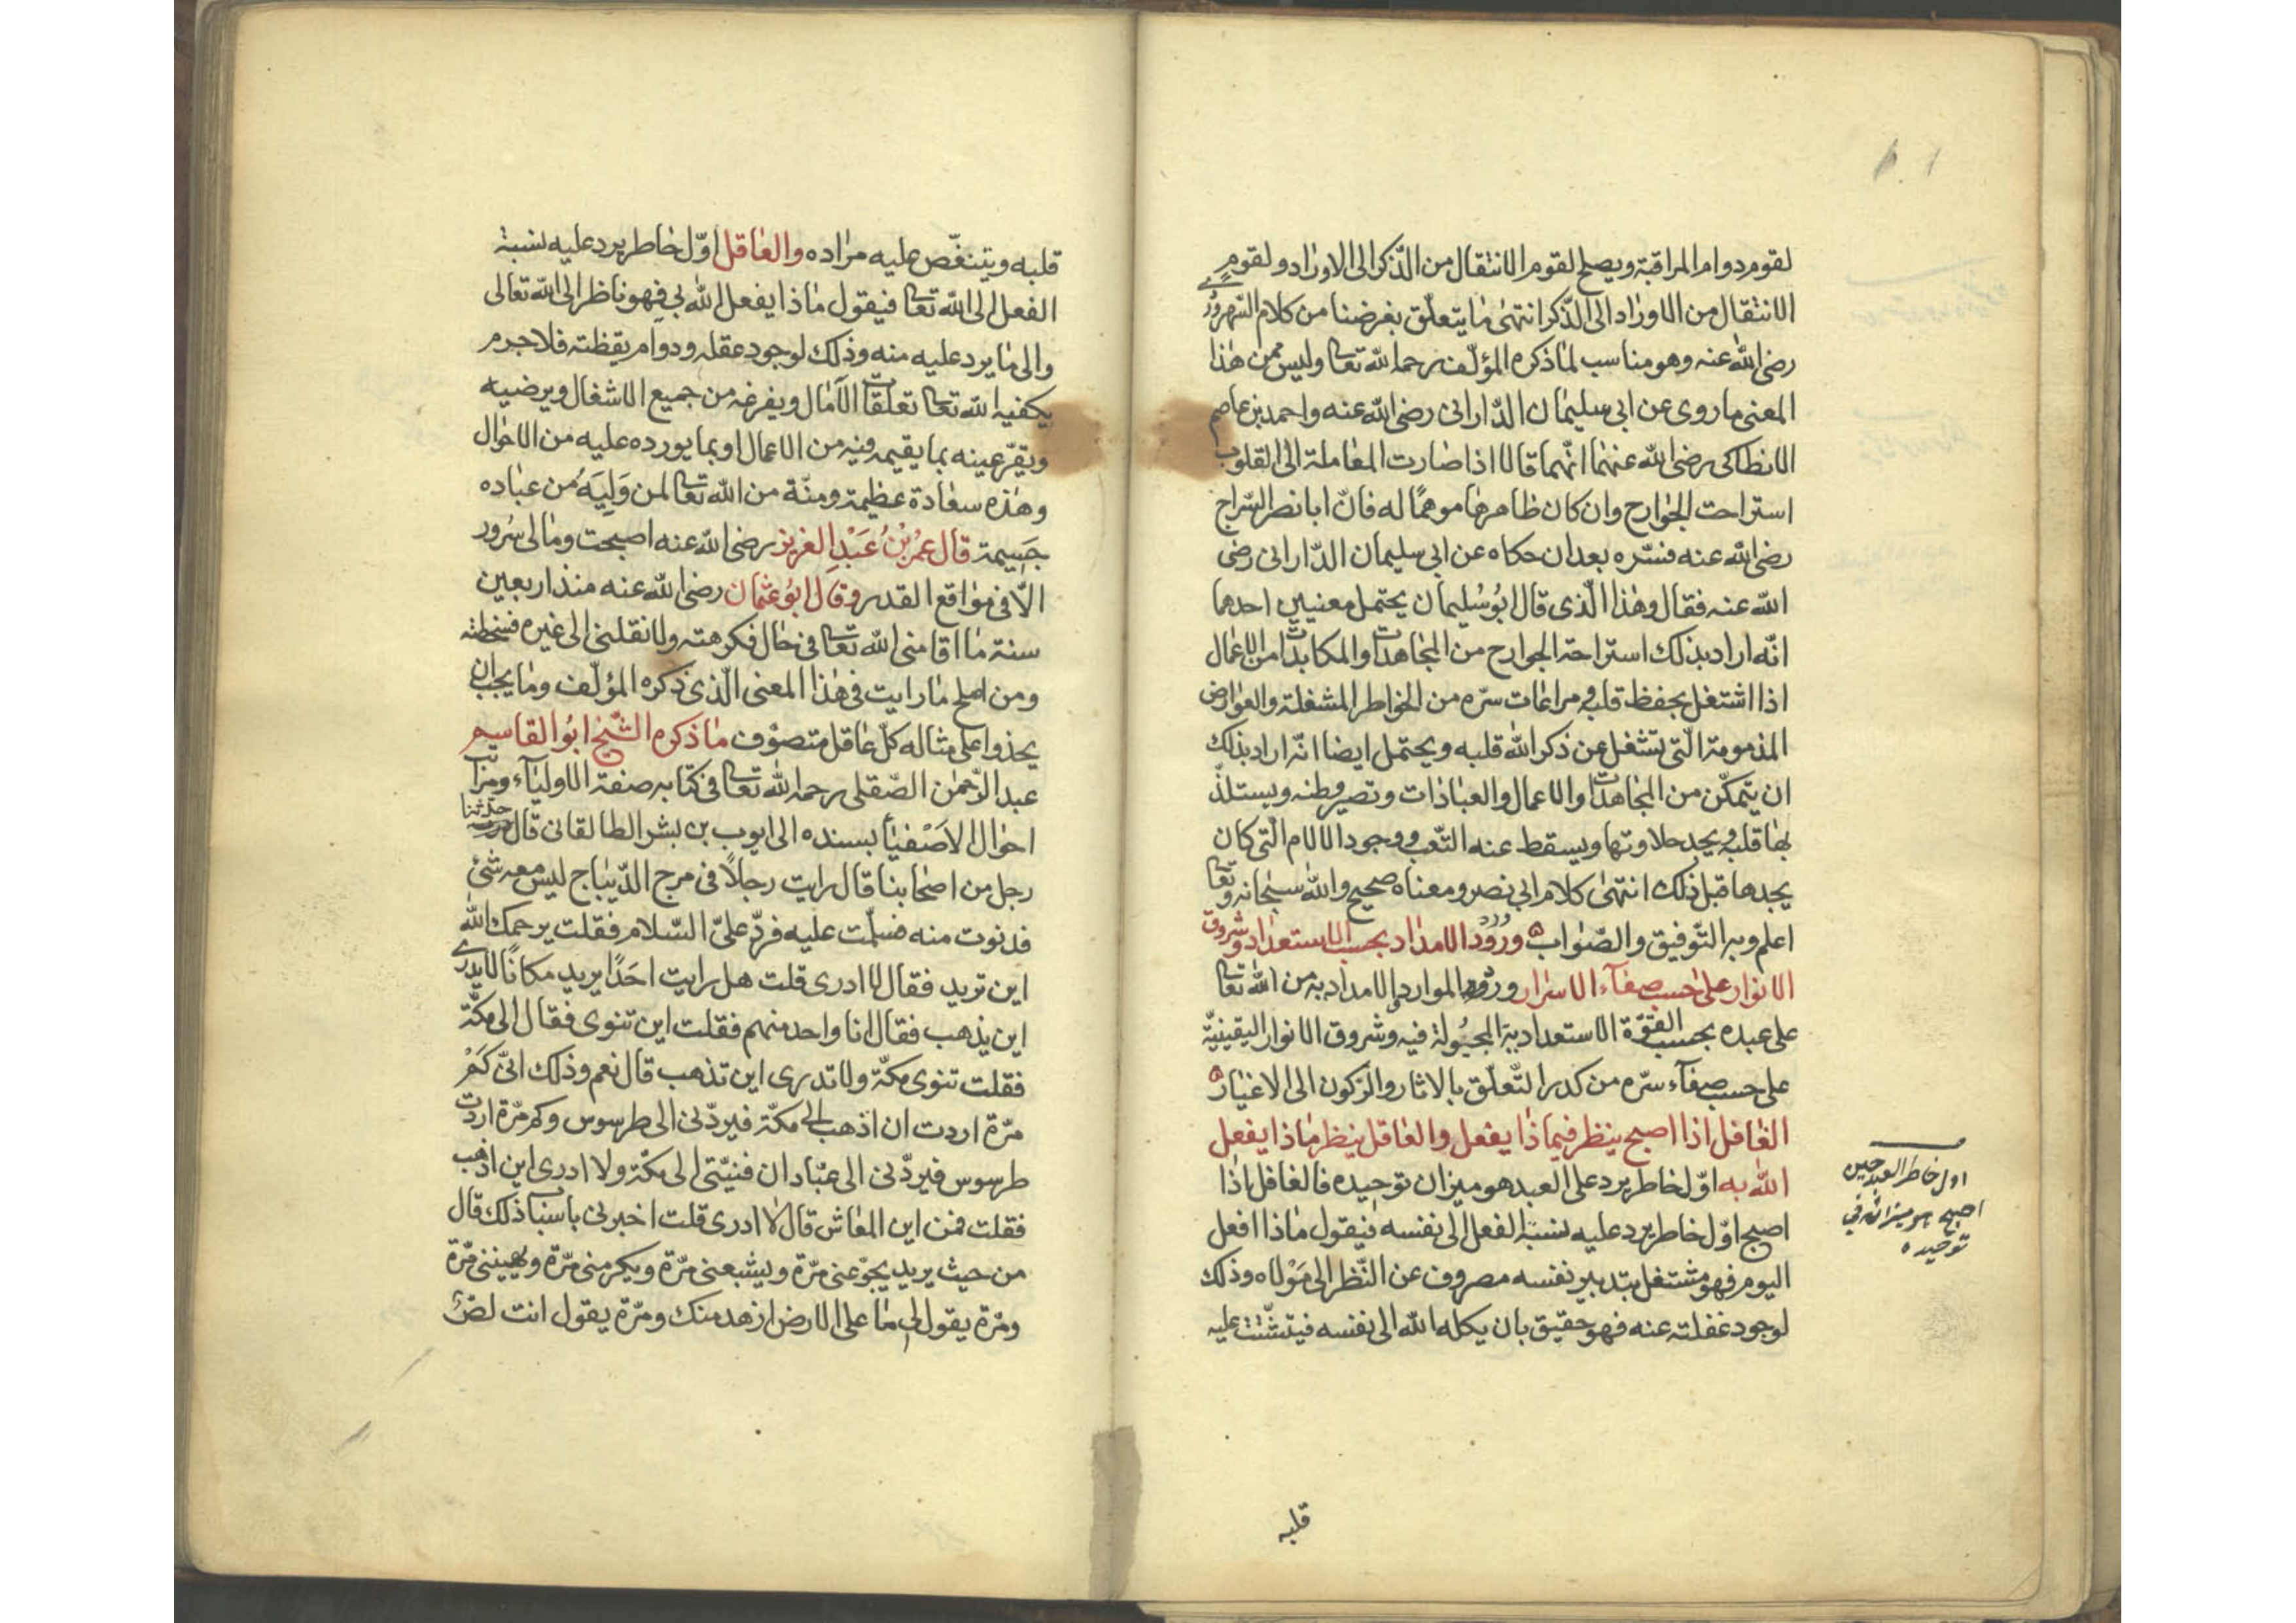 لقوم دوام المراقبة ويصلح لقوم الانتقال من الذّكر الى الاوراد ولقوم
الانتقال من الاوراد الى الذّكر انتهى ما يتعلّق بغرضنا من كلام السّهروردي
رضي الله عنه وهو مناسب لما ذكره المؤلّف رحمه الله تعا وليس من هذا
المعنى ما روى عن ابي سليمان الدّاراني رضي الله عنه واحمد بن عاصم
الانطاكى رضي الله عنهما انّهما قالا اذا صارت المعاملة الى القلوب
استراحت الجوارح وان كان ظاهرها موهمًا له فانّ ابا نصر السّراج
رضي الله عنه فسّره بعد ان حكاه عن ابي سليمان الدّاراني رضي
الله عنه فقال وهذا الّذى قال ابو سليمان يحتمل معنيين احدهما
انّه اراد بذلك استراحة الجوارح من المجاهدات والمكابدات من الاعمال
اذا اشتغل بحفظ قلبه ومراعات سرّه من الخواطر المشغلة والعوارض
المذمومة الّتى تشغل عن ذكر الله قلبه ويحتمل ايضا انّه اراد بذلك
ان يتمكّن من المجاهدات والاعمال والعبادات وتصير وطنه ويستلذّ
بها قلبه ويجد حلاوتها ويسقط عنه التّعب ووجود الالام الّتى كان
يجدها قبل ذلك انتهى كلام ابي نصر ومعناه صحيح والله سبحانه وتعا
اعلم وبه التّوفيق والصّواب ٥ ورود الامداد بحسب الاستعداد وشروق
الانوار على حسب صفآء الاسرار ورود الموارد والامداد به من الله تعا
على عبده بحسب القوّة الاستعدادية المجبولة فيه وشروق الانوار اليقينيّة
على حسب صفآء سرّه من كدر التّعلّق بالاثار والرّكون الى الاغيار ٥
الغافل اذا اصبح ينظر فيماذا يفعل والعاقل ينظر ماذا يفعل
الله به اوّل خاطر يرد على العبد هو ميزان توحيده فالغافل اذا
اصبح اوّل خاطر يرد عليه نسبة الفعل الى نفسه فيقول ماذا افعل
اليوم فهو مشتغل بتدبير نفسه مصروف عن النّظر الى مولاه وذلك
لوجود غفلته عنه فهو حقيق بان يكله الله الى نفسه فيتشتّت عليه
قلبه
اول خاطر العبد حين
اصبح هو ميزانه في
توحيده
قلبه ويتنغّص عليه مراده والعاقل اوّل خاطر يرد عليه نسبة
الفعل الى الله تعا فيقول ماذا يفعل الله بي فهو ناظر الى الله تعالى
والى ما يرد عليه منه وذلك لوجود عقله ودوام يقظته فلا جرم
يكفيه الله تعا تعلّقات الآمال ويفرغه من جميع الاشغال ويرضيه
ويقرّ عينه بما يقيمه فيه من الاعمال او بما يورده عليه من الاحوال
وهذه سعادة عظيمة ومنّة من الله تعا لمن وَلِيَهُ من عباده
جسيمة قال عمر بن عبد العزيز رضي الله عنه اصبحت وما لى سرور
الّا فى مواقع القدر وقال ابو عثمان رضي الله عنه منذ اربعين
سنة ما اقامنى الله تعا فى حال فكرهته ولا نقلنى الى غيره فسخطته
ومن املح ما رايت فى هذا المعنى الّذى ذكره المؤلّف وما يجب ان
يحذوا على مثاله كلّ عاقل متصوّف ما ذكره الشّيخ ابو القاسم
عبد الرّحمن الصّقلى رحمه الله تعا فى كتابه صفة الاوليآء ومراتب
احوال الاَصْفياء بسنده الى ايوب بن بشر الطالقانى قال حدثنا
رجل من اصحابنا قال رايت رجلًا فى مرج الدّيباج ليس معه شئ
فدنوت منه فسلّمت عليه فردّ علىّ السّلام فقلت يرحمك الله
اين تريد فقال لا ادرى قلت هل رايت احدًا يريد مكانًا لا يدرى
اين يذهب فقال انا واحد منهم فقلت اين تنوى فقال الى مكّة
فقلت تنوى مكّة ولا تدرى اين تذهب قال نعم وذلك انّى كَمْ
مرّة اردت ان اذهب الى مكّة فيردّنى الى طرسوس وكم مرّة اردت
طرسوس فيردّنى الى عبّادان فنيّتى الى مكّة ولا ادرى اين اذهب
فقلت فمن اين المعاش قال لا ادرى قلت اخبرنى باسباب ذلك قال
من حيث يريد يجوّعنى مرّة ويشبعنى مرّة ويكرمنى مرّة ويهيننى مرّة
ومرّة يقول لى ما على الارض ازهد منك ومرّة يقول انت لصّ